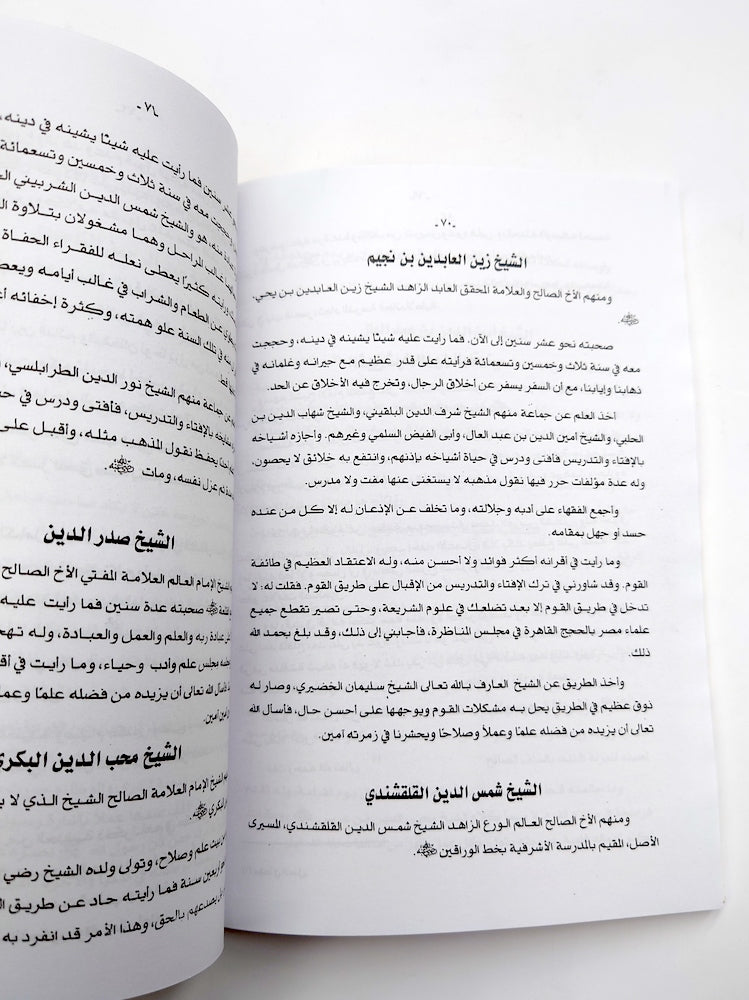 -٧٠-
الشيخ زين العابدين بن نجيم
ومنهم الأخ الصالح والعلامة المحقق العابد الزاهد الشيخ زين العابدين بن يحي.
ﷺ
صحبته نحو عشر سنين إلى الآن. فما رأيت عليه شيئا يشينه في دينه، وحججت
معه في سنة ثلاث وخمسين وتسعمائة فرأيته على قدر عظيم مع جيرانه وغلمانه في
ذهابنا وإيابنا، مع أن السفر يسفر عن أخلاق الرجال، وتخرج فيه الأخلاق عن الحد.
أخذ العلم عن جماعة منهم الشيخ شرف الدين البلقيني، والشيخ شهاب الدين بن
الحلبي، والشيخ أمين الدين بن عبد العال، وأبى الفيض السلمي وغيرهم. وأجازه أشياخه
بالإفتاء والتدريس فأفتى ودرس في حياة أشياخه بإذنهم، وانتفع به خلائق لا يحصون.
وله عدة مؤلفات حرر فيها نقول مذهبه لا يستغنى عنها مفت ولا مدرس.
وأجمع الفقهاء على أدبه وجلالته، وما تخلف عن الإذعان له إلا كل من عنده
حسد أو جهل بمقامه.
وما رأيت في أقرانه أكثر فوائد ولا أحسن منه، وله الاعتقاد العظيم في طائفة
القوم. وقد شاورني في ترك الإفتاء والتدريس من الإقبال على طريق القوم. فقلت له: لا
تدخل في طريق القوم إلا بعد تضلعك في علوم الشريعة، وحتى تصير تقطع جميع
علماء مصر بالحجج القاهرة في مجلس المناظرة، فأجابني إلى ذلك، وقد بلغ بحمد الله
ذلك.
وأخذ الطريق عن الشيخ العارف بالله تعالى الشيخ سليمان الخضيري، وصار له
ذوق عظيم في الطريق يحل به مشكلات القوم ويوجهها على أحسن حال، فأسأل الله
تعالى أن يزيده من فضله علمًا وعملاً وصلاحًا ويحشرنا في زمرته آمين.
الشيخ شمس الدين القلقشندي
ومنهم الأخ الصالح العالم الورع الزاهد الشيخ شمس الدين القلقشندي، المسيرى
الأصل، المقيم بالمدرسة الأشرفية بخط الوراقين
-٧٦-
عشر سنين فما رأيت عليه شيئا يشينه في دينه،
حججت معه في سنة ثلاث وخمسين وتسعمائة
منه، هو والشيخ شمس الدين الشربيني
غالب المراحل وهما مشغولان بتلاوة
ورأيته كثيرًا يعطى نعله للفقراء الحفاة
عن الطعام والشراب في غالب أيامه
في تلك السنة علو همته، وكثرة إخفائه
قط.
عن جماعة منهم الشيخ نور الدين الطرابلسي،
بالإفتاء والتدريس، فأفتى ودرس في
أحدا يحفظ نقول المذهب مثله، وأقبل على
ثم عزل نفسه، ومات
الشيخ صدر الدين
الشيخ الإمام العالم العلامة المفتي الأخ الصالح
صحبته عدة سنين فما رأيت عليه
عبادة ربه والعلم والعمل والعبادة، وله
مجلس علم وأدب وحياء، وما رأيت في
الله تعالى أن يزيده من فضله علمًا
آمين.
الشيخ محب الدين البكري
الشيخ الإمام العلامة الصالح الشيخ الذي لا
البكري
بيت علم وصلاح، وتولى ولده الشيخ رضي
أربعين سنة فما رأيته حاد عن طريق
يصدعهم بالحق، وهذا الأمر قد انفرد به